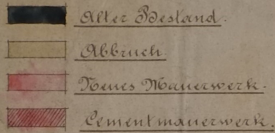 Alter Bestand.
Abbruch
Neues Mauerwerk.
Cementmauerwerk.